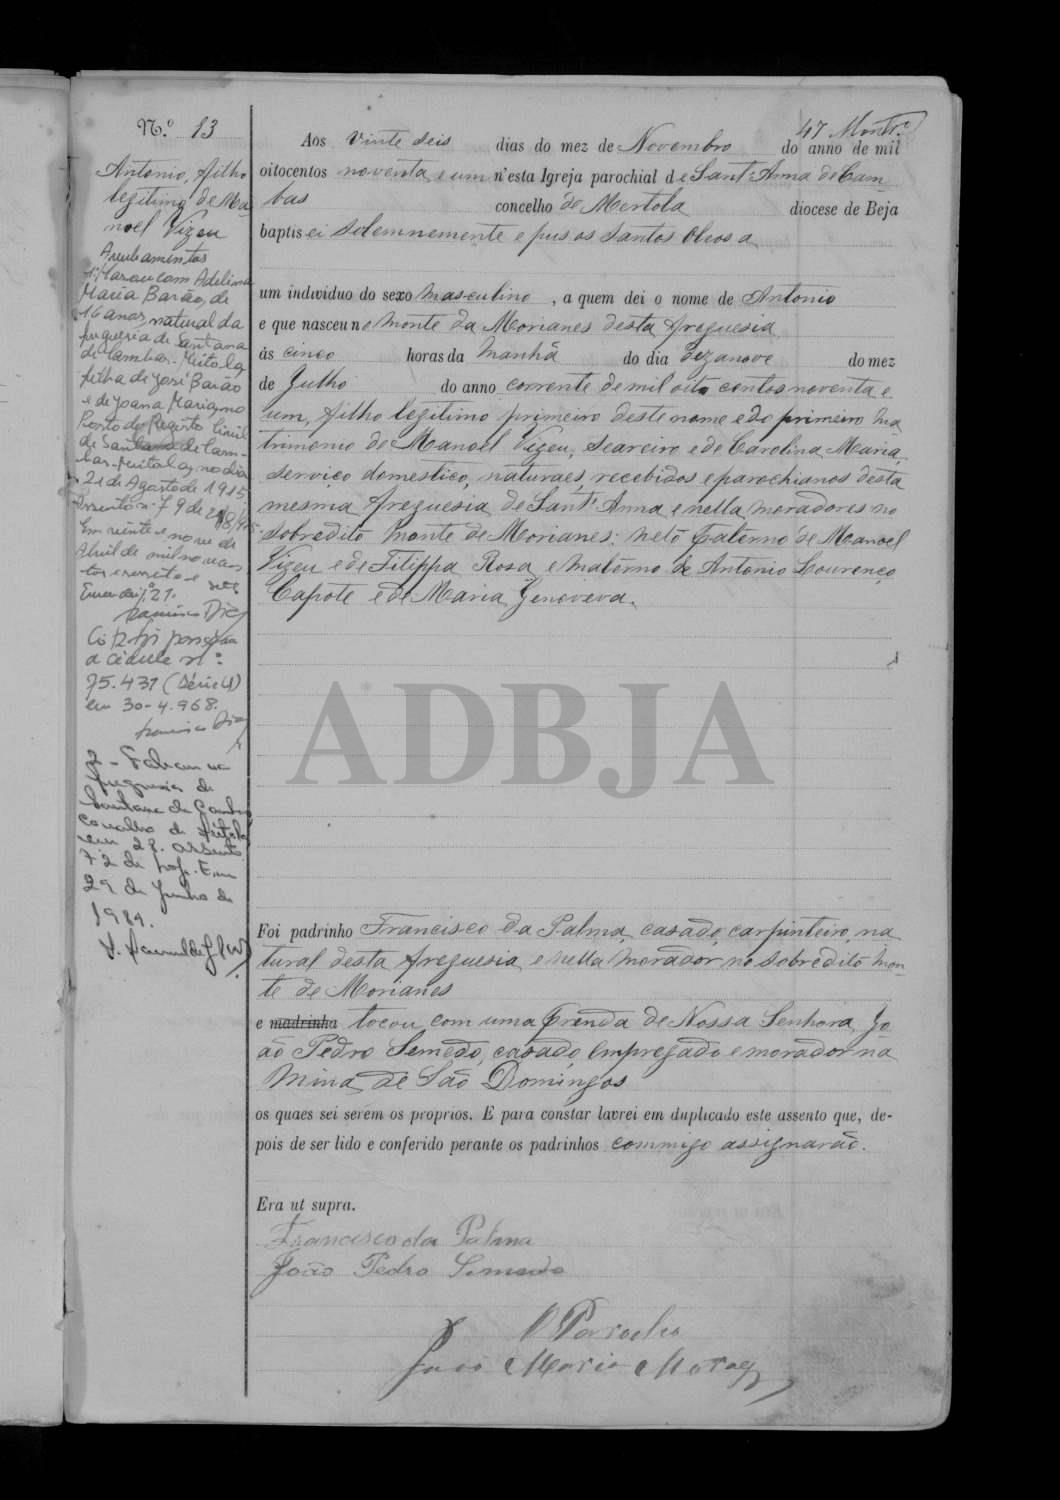 47 Montr.º
N.º 13
Antonio, filho
legitimo de Ma-
noel Vizeu
Averbamentos
1.º Casou com Adelina
Maria Barão, de
16 anos, natural da
freguesia de Santana
de Cambas - Mértola
filha de José Barão
e de Joana Mariano
Posto do Registo Civil
de Santana de Cam-
bas - Mértola, no dia
21 de Agosto de 1915
Assento n.º 79 de
Em vinte e nove de
Abril de mil novecen-
tos e sessenta e sete
Emendei: 21.
Francisco Dias
a cédula n.º
75.431 (Série U)
em 30-4-968.
Francisco Dias
2 - Faleceu na
freguesia de
Santana de Cambas
concelho de Mértola
em 28. assento
72 de
29 de Junho de
1984.
Aos vinte seis dias do mez de Novembro do anno de mil
oitocentos noventa e um n'esta Igreja parochial de Sant'Anna de Cam
bas concelho de Mertola diocese de Beja
baptisei solemnemente e pus os Santos Oleos a
um individuo do sexo masculino, a quem dei o nome de Antonio
e que nasceu no monte da Morianes desta freguesia
ás cinco horas da manhã do dia dezanove do mez
de Julho do anno corrente de mil oito centos noventa e
um, filho legitimo primeiro deste nome e do primeiro ma
trimonio de Manoel Vizeu, seareiro e de Carolina Maria,
serviço domestico, naturaes, recebidos e parochianos desta
mesma freguesia de Sant'Anna e nella moradores no
sobredito monte de Morianes: neto paterno de Manoel
Vizeu e de Filippa Rosa, e materno de Antonio Lourenço
Capote e de Maria Genoveva.
ADBJA
Foi padrinho Francisco da Palma, casado, carpinteiro, na
tural desta freguesia e nella morador no sobredito mon-
te de Morianes
e madrinha tocou com uma prenda de Nossa Senhora, Jo
ão Pedro Semedo, casado, empregado e morador na
Mina de São Domingos
os quaes sei serem os proprios. E para constar lavrei em duplicado este assento que, de-
pois de ser lido e conferido perante os padrinhos commigo assignarão.
Era ut supra.
Francisco da Palma
João Pedro Semedo
O Parocho
João Maria